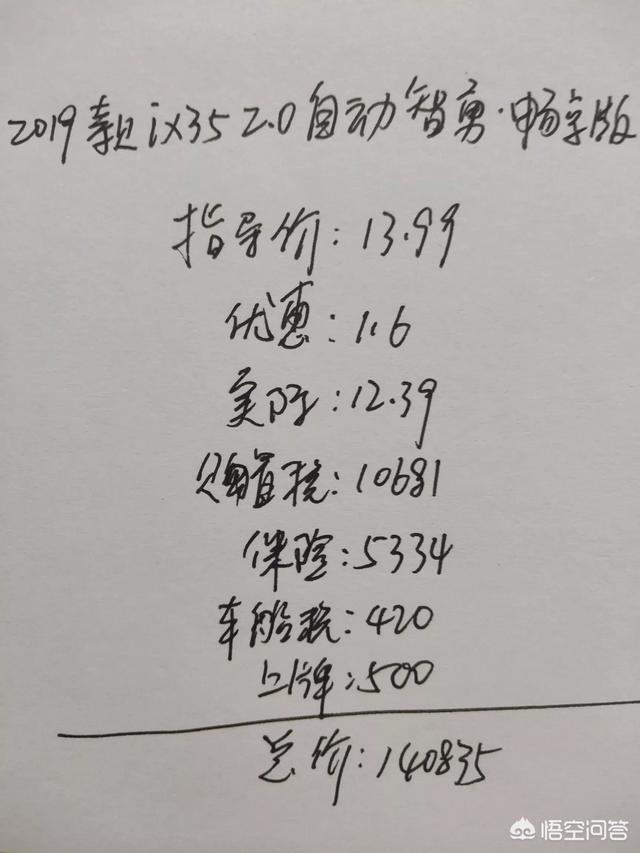 2019款ix35 2.0自动智勇·畅享版
指导价:13.99
优惠:1.6
实际:12.39
购置税:10681
保险:5334
车船税:420
上牌:500
总价:140835
悟空问答